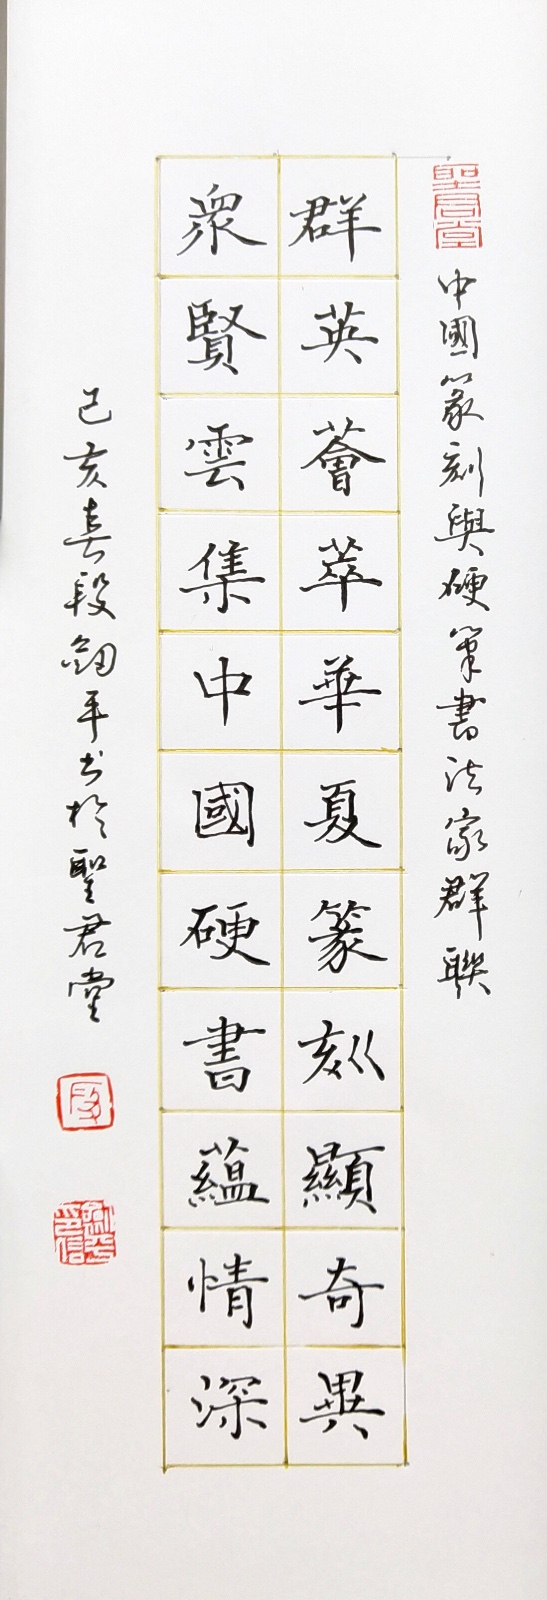 聖君堂
中國篆刻與硬筆書法家群聯
群英薈萃華夏篆刻顯奇異
眾賢雲集中國硬書蘊情深
己亥春段劍平书於聖君堂
段